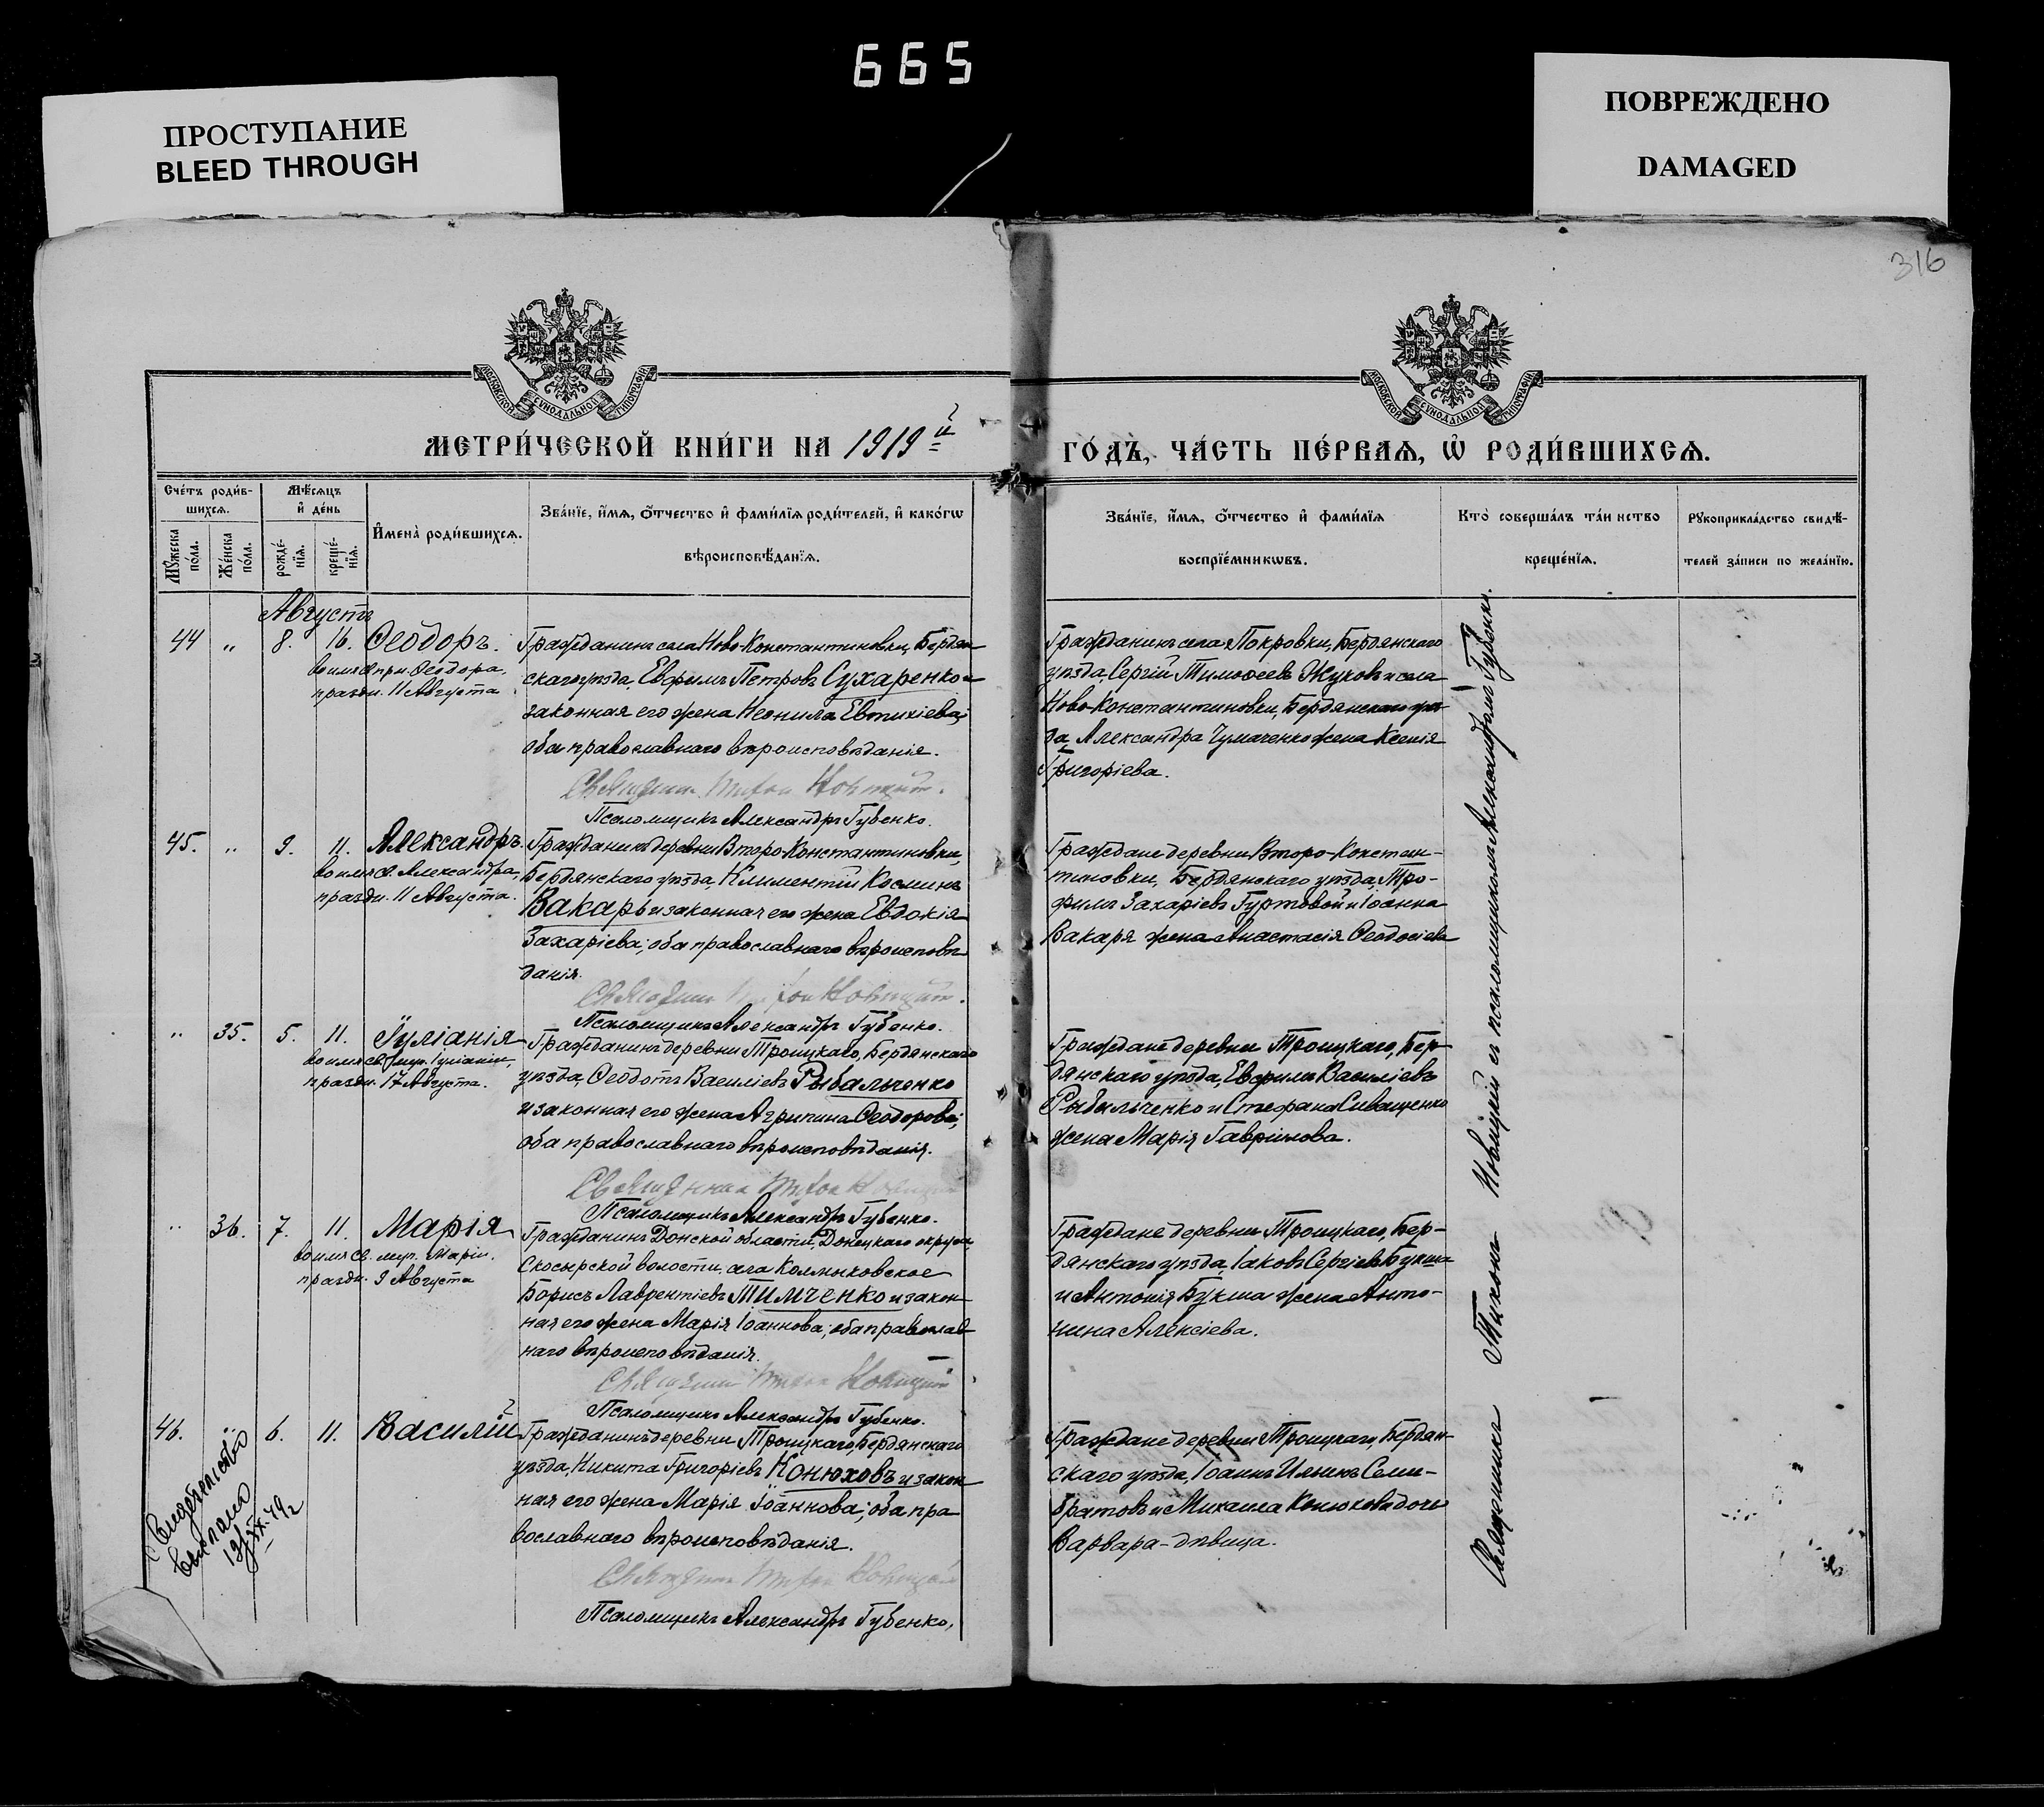 665
ПРОСТУПАНИЕ
BLEED THROUGH
ПОВРЕЖДЕНО
DAMAGED
316
МОСКОВСКОЙ СУНОДАЛЬНОЙ ТИПОГРАФІИ
МОСКОВСКОЙ СУНОДАЛЬНОЙ ТИПОГРАФІИ
МЕТРИ́ЧЕСКОЙ КНИ́ГИ НА 1919й
ГО́ДЪ, ЧА́СТЬ ПЕ́РВАѦ, Ѡ РОДИ́ВШИХСѦ.
Сче́тъ роди́в-
шихсѧ.
Мꙋ́жеска
по́ла.
Же́нска
по́ла.
Мѣ́сѧцъ
и҆ де́нь
рожде́-
нїѧ.
креще́-
нїѧ.
И҆мена̀ роди́вшихсѧ.
Зва́нїе, и҆́мѧ, ѻ҆́тчество и҆ фами́лїѧ роди́телей, и҆ како́гѡ
вѣроисповѣ́данїѧ.
Зва́нїе, и҆́мѧ, ѻ҆́тчество и҆ фами́лїѧ
воспрїе́мникѡвъ.
Кто̀ соверша́лъ та́инство
креще́нїѧ.
Рꙋкоприкла́дство свидѣ́-
телей за́писи по жела́нїю.
Августъ
44 " 8. 16. Ѳеодоръ.
праздн. 11 Августа
Гражданинъ села Ново-Константиновки, Бердян-
скаго уѣзда, Евфимъ Петровъ Сухаренко и
законная его жена Неонила Евтихіева;
оба православнаго вѣроисповѣданія.
Священник Тихон Новицкий.
Псаломщикъ Александръ Губенко.
Гражданинъ села Покровки, Бердянскаго
уѣзда, Сергій Тимоѳеевъ Жуковъ и села
Ново-Константиновки, Бердянскаго уѣз-
да, Александра Чумаченко жена Ксенія
Григоріева.
45. " 9. 11. Александръ.
во имя св. Александра,
праздн. 11 Августа.
Гражданинъ деревни Второ-Константиновки,
Бердянскаго уѣзда, Климентій Косминъ
Вакарь и законная его жена Евдокія
Захаріева; оба православнаго вѣроисповѣ-
данія.
Священник Тихон Новицкий.
Псаломщикъ Александръ Губенко.
Граждане деревни Второ-Констан-
тиновки, Бердянскаго уѣзда, Тро-
фимъ Захаріевъ Гуртовой и Іоанна
Вакаря жена Анастасія Ѳеодосіева
" 35. 5. 11. Іуліанія
во имя св. муч. Іуліаніи,
праздн. 17 Августа.
Гражданинъ деревни Троицкаго, Бердянскаго
уѣзда, Ѳеодотъ Василіевъ Рыбальченко
и законная его жена Агрипина Ѳеодорова;
оба православнаго вѣроисповѣданія.
Священник Тихон Новицкий
Псаломщикъ Александръ Губенко.
Граждане деревни Троицкаго, Бер-
дянскаго уѣзда, Евфимъ Василіевъ
Рыбальченко и Стефана Сиващенко
жена Марія Гавріилова.
" 36. 7. 11. Марія
во имя св. муч. Маріи.
праздн. 9 Августа
Гражданинъ Донской области, Донецкаго округа,
Скосырской волости, села Колмыковское
Борисъ Лаврентіевъ Тимченко и закон-
ная его жена Марія Іоаннова; оба православ-
наго вѣроисповѣданія.
Священник Тихон Новицкий
Псаломщикъ Александръ Губенко.
Граждане деревни Троицкаго, Бер-
дянскаго уѣзда, Іаковъ Сергіевъ Букша
и Антонія Букша жена Анто-
нина Алексіева.
46. 6. 11. Василій
Свидѣтельство
выслано
Гражданинъ деревни Троицкаго, Бердянскаго
уѣзда, Никита Григоріевъ Конюховъ и закон
ная его жена Марія Іоаннова; оба пра
вославнаго вѣроисповѣданія.
Священник Тихон Новицкий
Псаломщикъ Александръ Губенко.
Граждане деревни Троицкаго, Бердян-
скаго уѣзда, Іоаннъ Ильинъ Семи-
братовъ и Михаила Конюхова дочь
Варвара - дѣвица.
Священникъ Тихонъ Новицкій съ псаломщикомъ Александромъ Губенко.